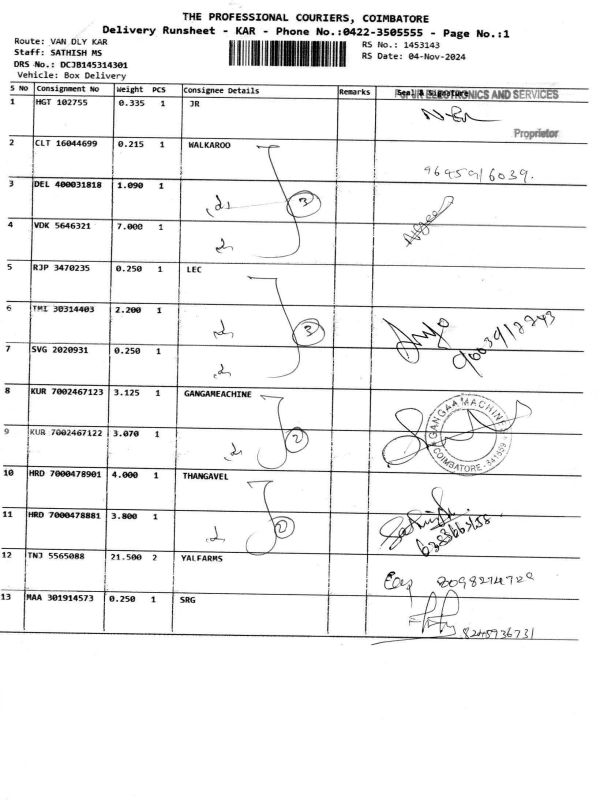 THE PROFESSIONAL COURIERS, COIMBATORE
Delivery Runsheet - KAR - Phone No.:0422-3505555 - Page No.:1
Route: VAN DLY KAR
RS No.: 1453143
Staff: SATHISH MS
RS Date: 04-Nov-2024
DRS No.: DCJB145314301
Vehicle: Box Delivery
S No Consignment No Weight PCS Consignee Details Remarks Seal & Signature
ELECTRONICS AND SERVICES
1 HGT 102755 0.335 1 JR
Proprietor
2 CLT 16044699 0.215 1 WALKAROO
9695916039.
3 DEL 400031818 1.090 1 3
4 VDK 5646321 7.000 1
5 RJP 3470235 0.250 1 LEC
6 TMI 30314403 2.200 1 3
7 SVG 2020931 0.250 1
8 KUR 7002467123 3.125 1 GANGAMEACHINE
GANGAA MACHINE
COIMBATORE
9 KUR 7002467122 3.070 1 2
10 HRD 7000478901 4.000 1 THANGAVEL
11 HRD 7000478881 3.800 1 2
12 TNJ 5565088 21.500 2 YALFARMS
13 MAA 301914573 0.250 1 SRG
8245936731